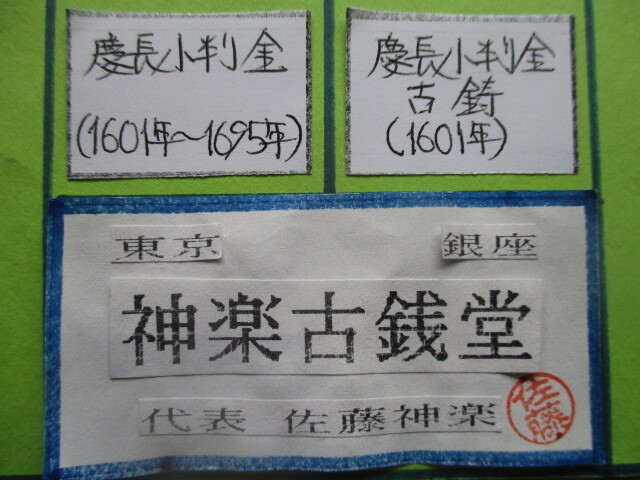 慶長小判金
(1601年～1695年)
慶長小判金
古鋳
(1601年)
東京 銀座
神楽古銭堂
代表 佐藤神楽
佐藤